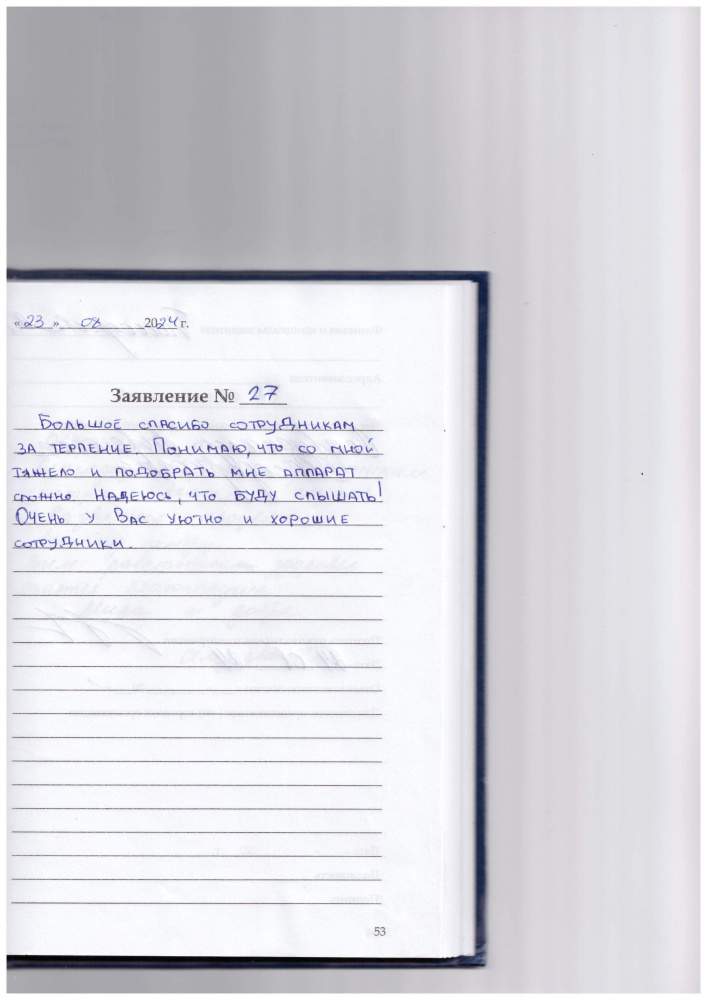 «23» 08 2024 г.
Заявление № 27
Большое спасибо сотрудникам
за терпение. Понимаю, что со мной
тяжело и подобрать мне аппарат
сложно. Надеюсь, что буду слышать!
Очень у Вас уютно и хорошие
сотрудники.
53